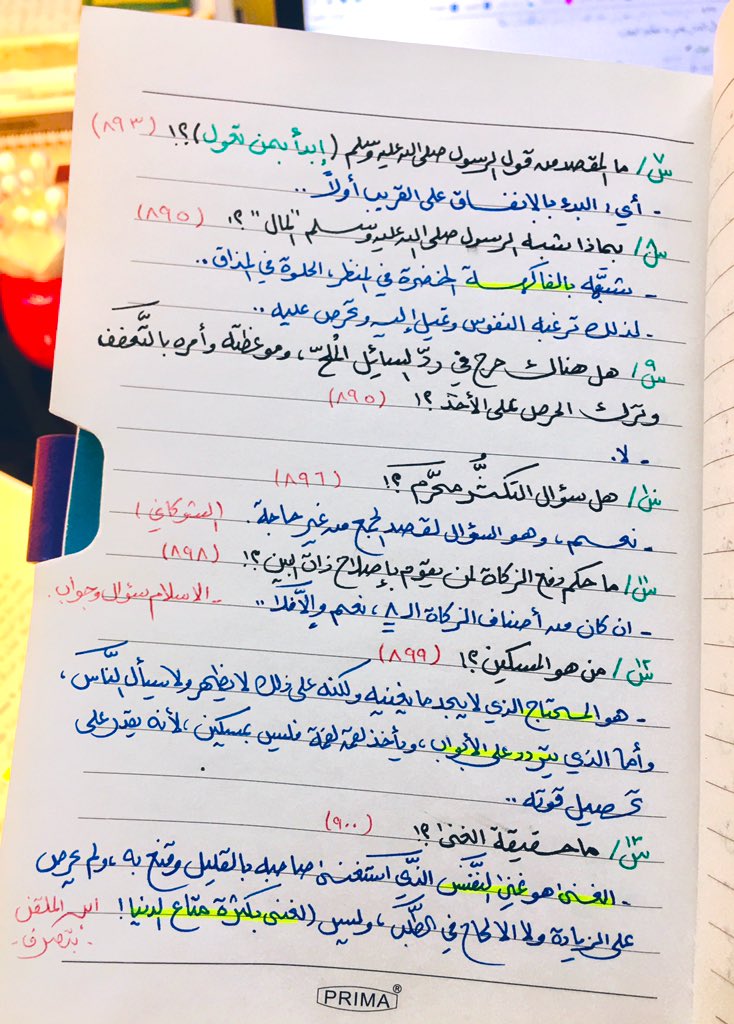 س٧/ ما المقصد من قول الرسول صلى الله عليه وسلم (إبدأ بمن تعول)؟! (٨٩٣)
- أي: البدء بالانفاق على القريب أولاً ..
س٨/ بماذا شبه الرسول صلى الله عليه وسلم "المال"؟! (٨٩٥)
- شبَّهه بالفاكهة الخضرة في المنظر، الحلوة في المذاق ..
- لذلك ترغبه النفوس وتميل إليه وتحرص عليه ..
س٩/ هل هناك حرج في ردّ السائل المُلحّ، وموعظته وأمره بالتَّعفف
وترك الحرص على الأخذ؟! (٨٩٥)
- لا.
س١٠/ هل سؤال التكثُّر محرَّم؟! (٨٩٦)
- نعم، وهو السؤال لقصد الجمع من غير حاجة. (الشوكاني)
س١١/ ما حكم دفع الزكاة لمن يقوم بإصلاح ذات البين؟! (٨٩٨)
- ان كان من أصناف الزكاة الـ ٨، نعم وإلَّا فلا .. - الاسلام سؤال وجواب.
س١٢/ من هو المسكين؟! (٨٩٩)
- هو المحتاج الذي لا يجد ما يغنيه ولكنه على ذلك لا يظهر ولا يسأل النَّاس،
وأما الذي يتردد على الأبواب، ويأخذ لقمة لقمة فليس بمسكين، لأنه يقدر على
تحصيل قوته ..
س١٣/ ما حقيقة الغنى؟! (٩٠٠)
- الغنى هو غنى النَّفْس الذي استغنى صاحبه بالقليل وقنع به، ولم يحرص
على الزيادة ولا الالحاح في الطَّلب، وليس الغنى بكثرة متاع الدنيا! ابن الملقن
- بتصرف -
PRIMA®